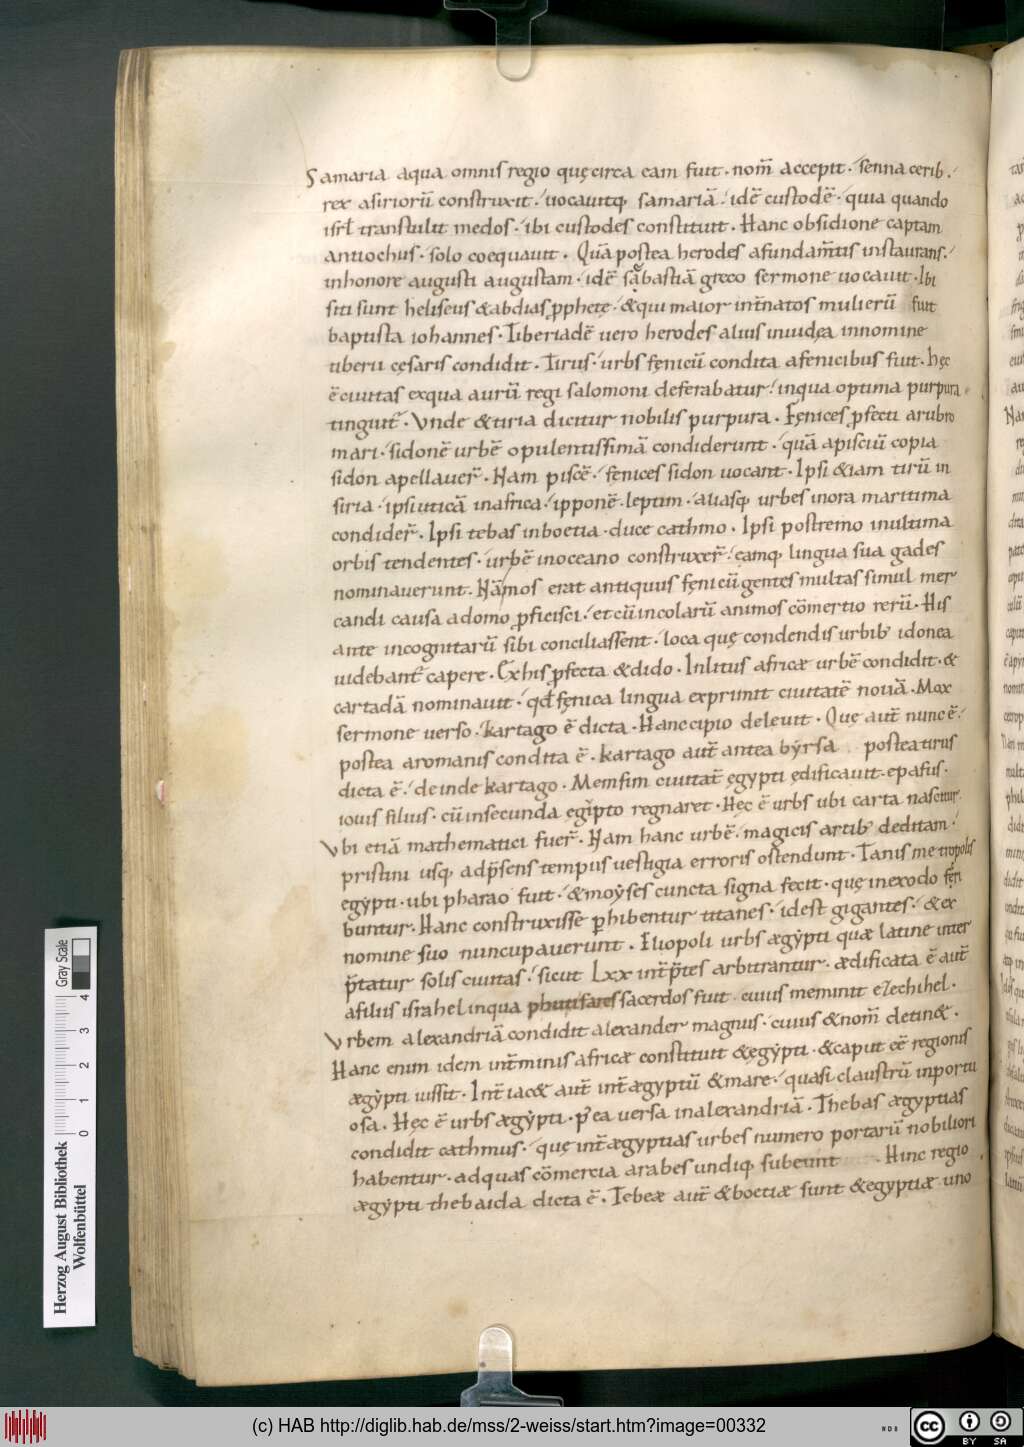 Samaria aqua omnis regio quę circa eam fuit · nom̄ accepit · senna cerib ·
rex asirioru᷒ construxit · uocauitq; samariā · idē custodē · quia quando
isrl̄ transtulit medos · ibi custodes constituit · Hanc obsidione captam
antiochus · solo coequauit · Quā postea herodes afundam̄tis instaurans ·
inhonore augusti augustam · idē sabastiā greco sermone uocauit · Ibi
siti sunt heliseus & abdias ꝓphetę · & qui maior int̄ natos mulierū fuit
baptista iohannes · Tiberiadē uero herodes alius iniudęa innomine
tiberii cęsaris condidit · Tirus · urbs fęnicū condita afenicibus fuit · hęc
ē ciuitas exqua aurū regi salomoni deferabatur · inqua optima purpura
tinguit᷒ · Vnde & tiria dicitur nobilis purpura · Fęnices ꝓfecti arubro
mari · sidonē urbē opulentissimā condiderunt · quā apisciū copia
sidon apellauer̄ · Nam piscē · fęnices sidon uocant · Ipsi & iam tirū in
siria · ipsi uticā inafrica · ipponē · leptim · aliasq; urbes inora maritima
condider̄ · Ipsi tebas inboetia · duce cathmo · Ipsi postremo inultima
orbis tendentes · urbē inoceano construxer̄ · eamq; lingua sua gades
nominauerunt · Nā mos erat antiquus fęnicū gentes multas simul mer
candi causa adomo ꝓficisci · et cū incolarū animos cōmertio rerū · His
ante incognitarū sibi conciliassent · loca quę condendis urbib; idonea
uidebant᷒ capere · Ex his ꝓfecta & dido · Inlitus africæ urbē condidit · &
cartadā nominauit · qd̄ fęnica lingua exprimit ciuitatē nouā · Mox
sermone uerso · kartago ē dicta · Hanc cipio deleuit · Quę aut̄ nunc ē ·
postea aromanis condita ē · kartago aut̄ antea byrsa postea tirus
dicta ē · deinde kartago · Memfim ciuitat̄ ęgypti ędificauit · epafus ·
iouis filius · cū insecunda ęgipto regnaret · Hęc ē urbs ubi carta nascitur
Vbi etiā mathematici fuer̄ · Nam hanc urbē · magicis artib; deditam ·
pristini usq; adp̄sens tempus uestigia erroris ostendunt · Tanis metropolis
egypti · ubi pharao fuit · & moyses cuncta signa fecit · quę inexodo scri
buntur · Hanc construxisse ꝑhibentur titanes · idest gigantes · & ex
nomine suo nuncupauerunt · Eliopoli urbs ægypti quæ latine inter
p̄tatur solis ciuitas · sicut Lxx int̄p̄tes arbitrantur · ædificata ē aut̄
afiliis israhel inqua phutifares sacerdos fuit · cuius meminit ezechihel ·
Vrbem alexandriā condidit alexander magnus · cuius & nom̄ detin& ·
Hanc enim idem int̄minis africæ constituit & ęgypti · & caput eē regionis
ægypti iussit · Int̄ iac& aut̄ int̄ ægyptū & mare · quasi claustrū inportu
osa · Hęc ē urbs ægypti · p᷒ea uersa inalexandriā · Thebas ægyptias
condidit cathmus · quę int̄ ægyptias urbes numero portarū nobiliori
habentur · ad quas cōmercia arabes undiq; subeunt · Hinc regio
ægypti thebaida dicta ē · Tebeæ aut̄ & boetiæ sunt & egyptiæ uno
Herzog August Bibliothek
Wolfenbüttel
Gray Scale
0 1 2 3 4
(c) HAB http://diglib.hab.de/mss/2-weiss/start.htm?image=00332
cc BY SA